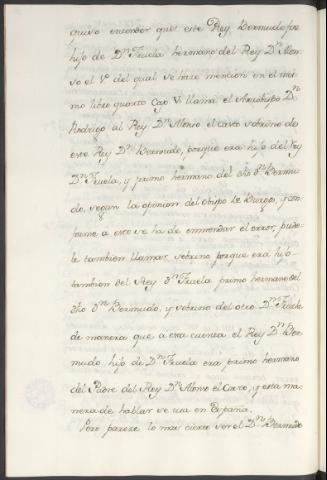 quiso entender que este Rey Bermudo fue
hijo de Dn. Fruela hermano del Rey Dn. Alon-
so el 1º del qual se hace mencion en el mis-
mo libro quarto Cap. V. llama el Arzobispo Dn.
Rodrigo al Rey Dn. Alonso el casto sobrino de
este Rey Dn. Bermudo, porque era hijo del Rey
Dn. Fruela, y primo hermano del dho Dn. Bermu-
do, segun la opinion del Obispo de Burgos, y con-
forme a esto se ha de enmendar el error, puede-
le tambien llamar sobrino porque era hijo
tambien del Rey Dn. Fruela primo hermano del
dho Dn. Bermudo, y sobrino del otro Dn. Fruela
de manera que a esa cuenta el Rey Dn. Ber-
mudo hijo de Dn. Fruela era primo hermano
del Padre del Rey Dn. Alonso el Casto, y esta ma-
nera de hablar se usa en España.
Pero parece lo mas cierto ser el Dn. Bermudo